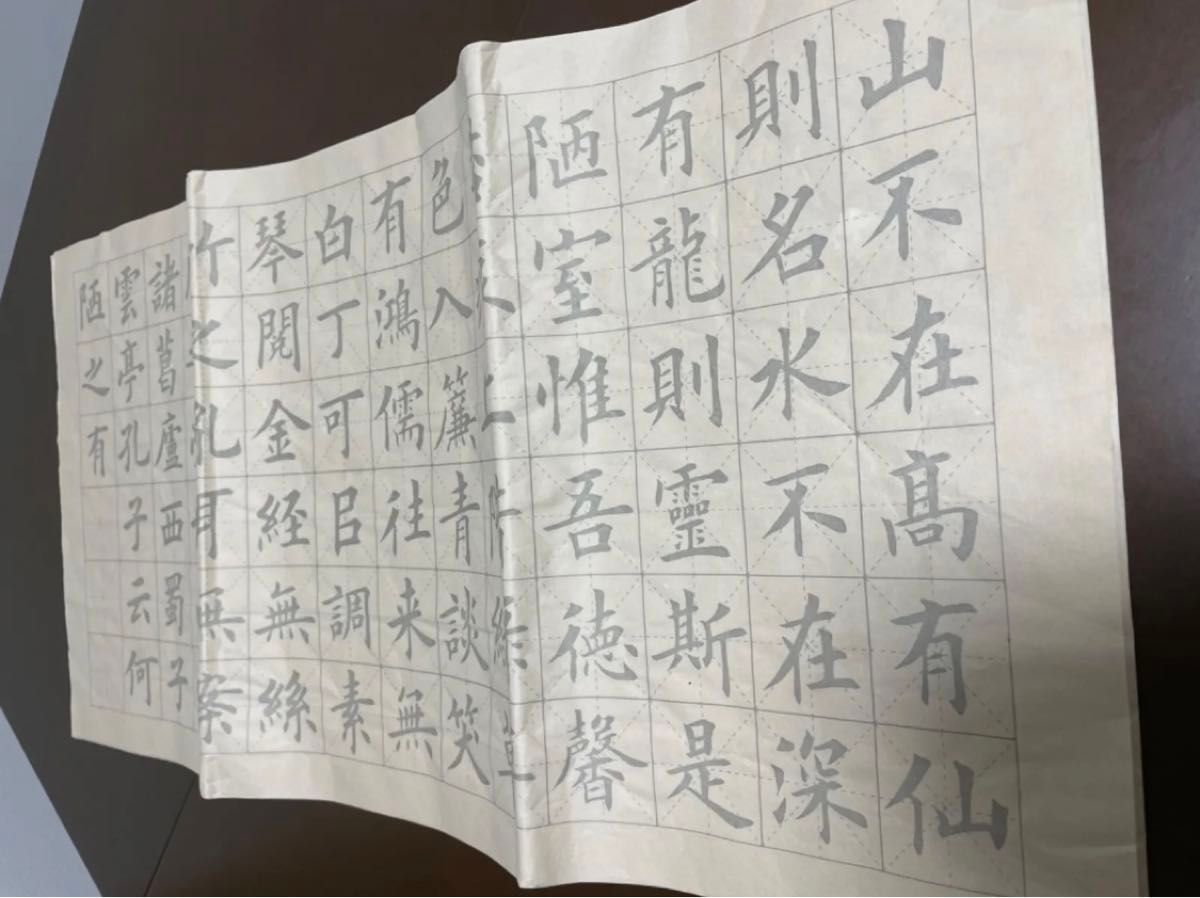 山不在髙有仙
則名水不在深
有龍則靈斯是
陋室惟吾徳馨
色入簾青談笑
有鴻儒往来無
白丁可㠯調素
琴閲金経無絲
竹之亂耳無案
諸葛廬西蜀子
雲亭孔子云何
陋之有